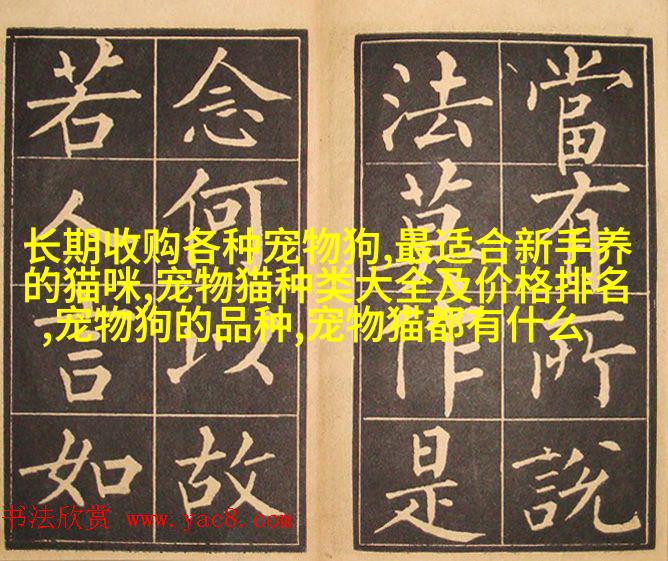 當有所說
法莫作是
念何以故
若人言如
长期收购各种宠物狗,最适合新手养
的猫咪,宠物猫种类大全及价格排名
,宠物狗的品种,宠物猫都有什么
书法欣赏 www.yac8.com